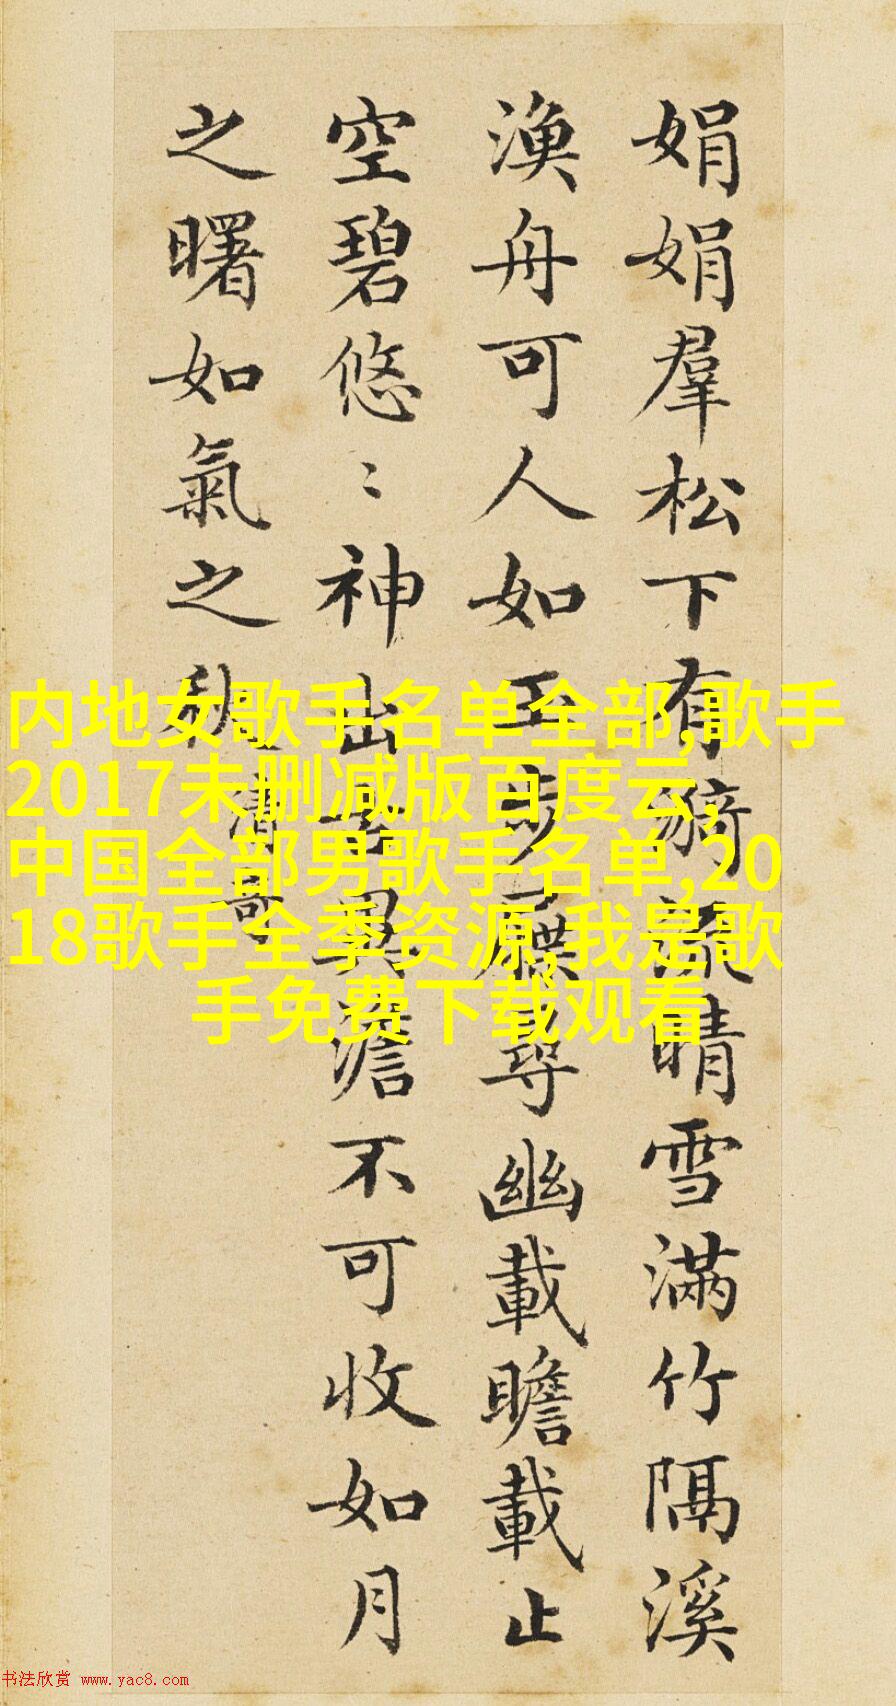 娟娟羣松下有漪流晴雪滿竹隔溪
漁舟可人如玉步屧尋幽載瞻載止
空碧悠〻神出古異澹不可收如月
之曙如氣之秋
清奇
内地女歌手名单全部,歌手
2017未删减版百度云,
中国全部男歌手名单,20
18歌手全季资源,我是歌
手免费下载观看
书法欣赏 www.yac8.com